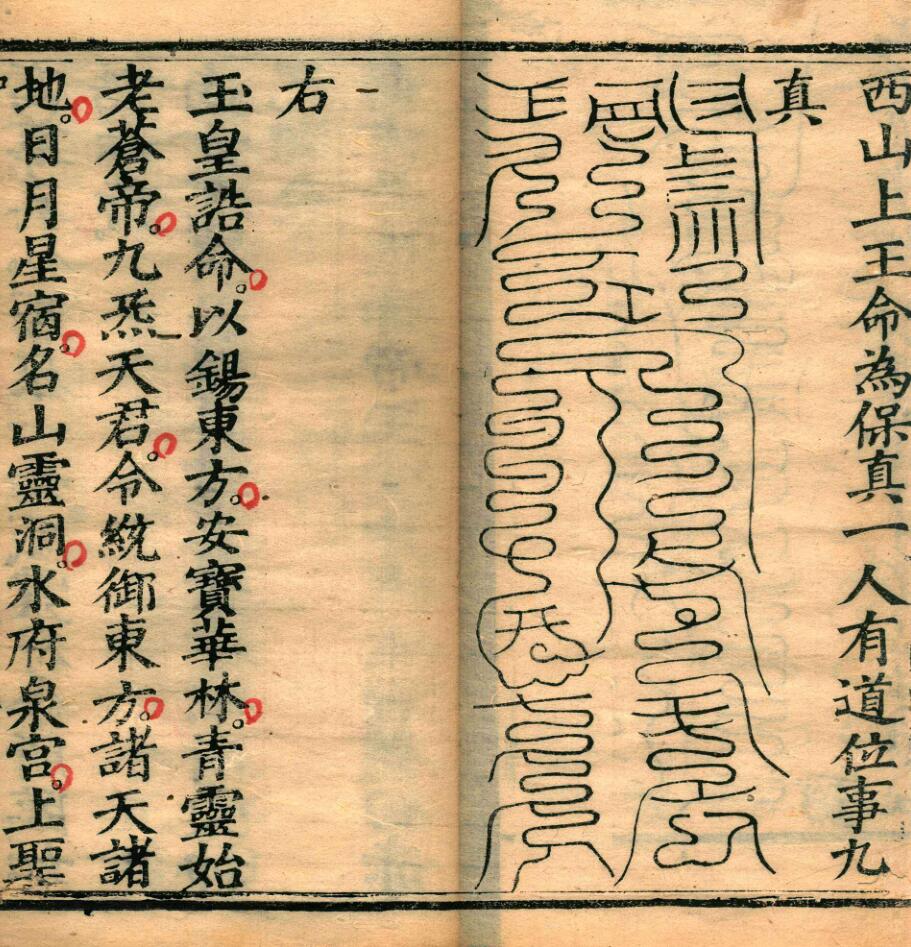 西山上王命為保真一人有道位事九
真
右
玉皇誥命。以錫東方。安寶華林。青靈始
老蒼帝。九炁天君。令統御東方。諸天諸
地。日月星宿。名山靈洞。水府泉宮。上聖